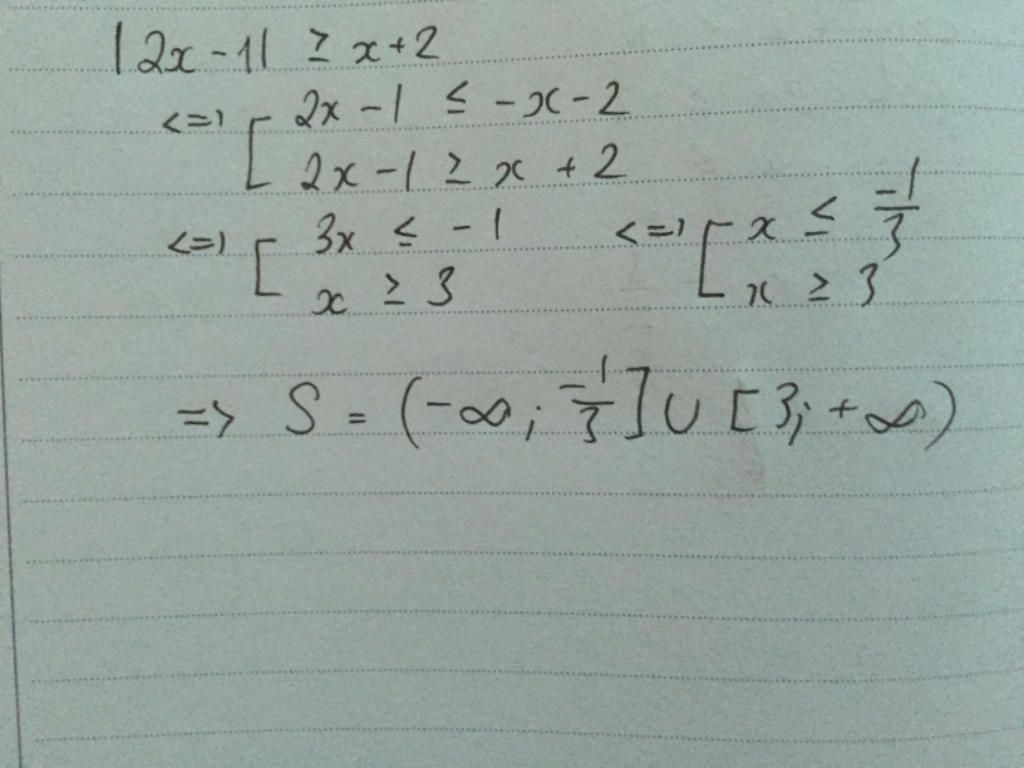 |2x-1| ≥ x+2
<=> [ 2x-1 ≤ -x-2
2x-1 ≥ x+2
<=> [ 3x ≤ -1 <=> [ x ≤ -1/3
x ≥ 3 x ≥ 3
=> S = (-∞; -1/3] ∪ [3; +∞)